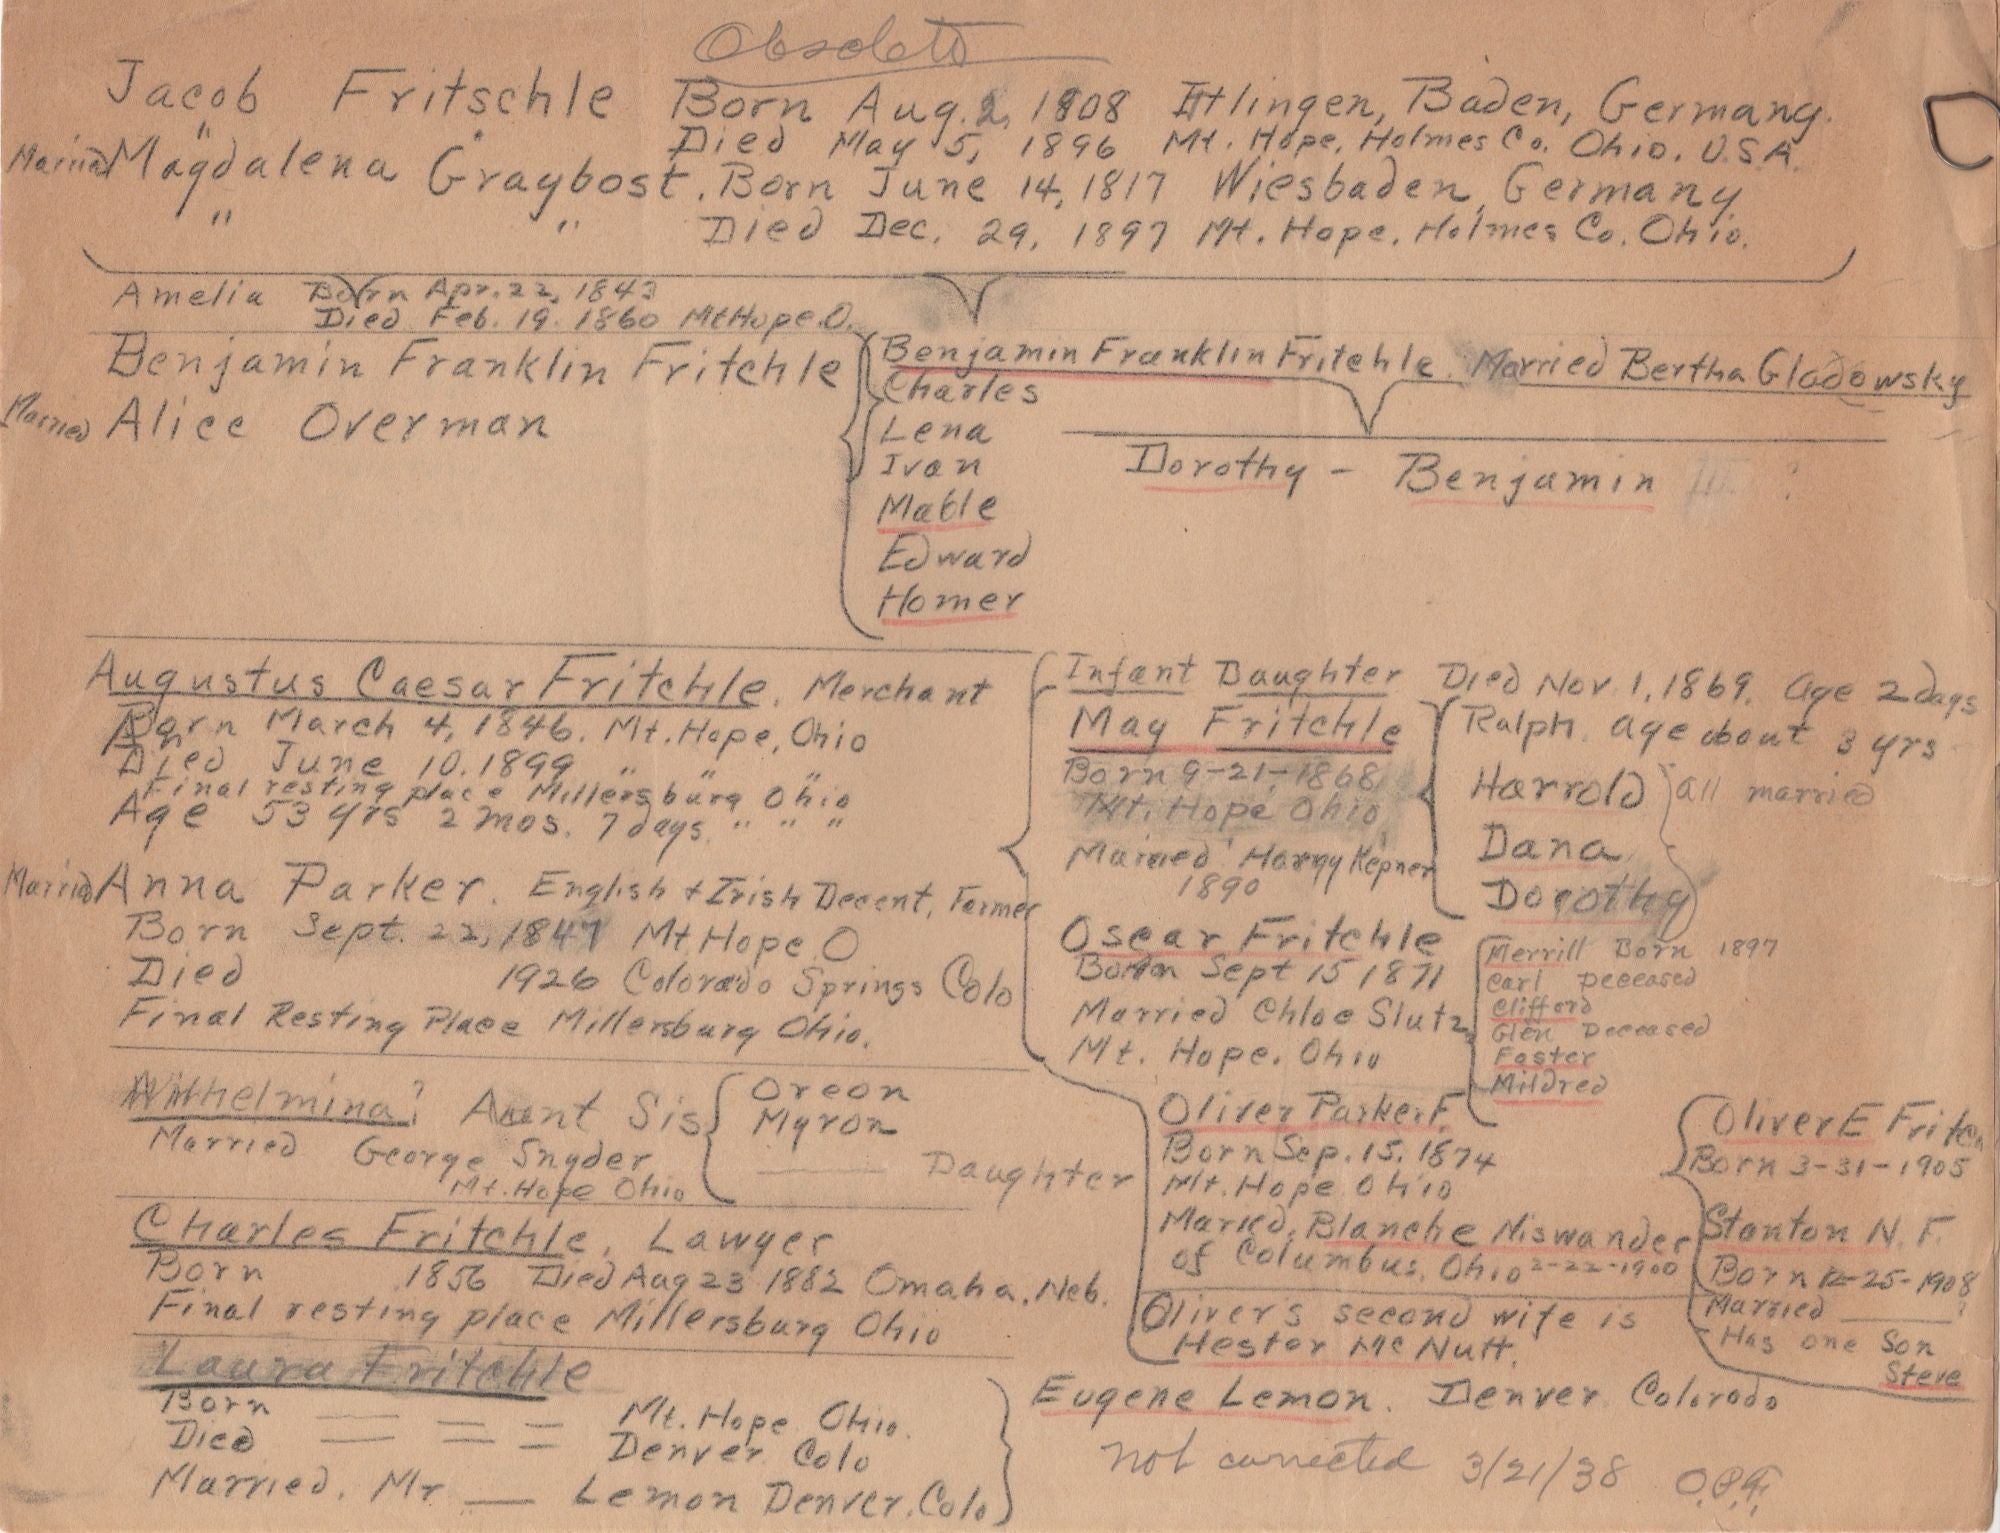 Obsolete
Jacob Fritschle Born Aug. 2, 1808 Ittlingen, Baden, Germany.
" " Died May 5, 1896 Mt. Hope, Holmes Co. Ohio. U.S.A.
Married Magdalena Graybost. Born June 14, 1817 Wiesbaden, Germany
" " Died Dec. 29, 1897 Mt. Hope, Holmes Co. Ohio.
Amelia Born Apr. 22, 1843
Died Feb. 19. 1860 Mt Hope. O.
Benjamin Franklin Fritchle
Married Alice Overman
Benjamin Franklin Fritchle. Married Bertha Gladowsky
Charles
Lena
Ivan
Mable
Edward
Homer
Dorothy - Benjamin III ?
Augustus Caesar Fritchle. Merchant
Born March 4, 1846. Mt. Hope, Ohio
Died June 10. 1899 " " "
Final resting place Millersburg Ohio
Age 53 yrs 2 mos. 7 days. " " "
Married Anna Parker. English + Irish Decent, Farmer
Born Sept. 22, 1847 Mt Hope O
Died 1926 Colorado Springs Colo
Final Resting Place Millersburg Ohio.
Infant Daughter Died Nov. 1, 1869. Age 2 days
May Fritchle
Born 9-21-1868
Mt. Hope Ohio
Married Harry Kepner
1890
Ralph. age about 3 yrs
Harrold all married
Dana
Dorothy
Oscar Fritchle
Born Sept 15 1871
Married Chloe Slutz
Mt. Hope. Ohio
Merrill Born 1897
Carl Deceased
Clifford
Glen Deceased
Foster
Mildred
Oliver Parker. F.
Born Sep. 15. 1874
Mt. Hope Ohio
Maried. Blanche Niswander
of Columbus, Ohio 2-22-1900
Oliver's second wife is
Hester McNutt.
Oliver E Fritc
Born 3-31-1905
Stanton N. F.
Born 12-25-1908
Married ?
Has one Son
Steve
Wilhelmina? Aunt Sis
Married George Snyder
Mt. Hope Ohio
Oreon
Myron
Daughter
Charles Fritchle. Lawyer
Born 1856 Died Aug 23 1882 Omaha, Neb.
Final resting place Millersburg Ohio
Laura Fritchle
Born Mt. Hope Ohio.
Died Denver Colo
Married. Mr Lemon Denver. Colo
Eugene Lemon. Denver Colorado
Not corrected 3/21/38 O.P.F.